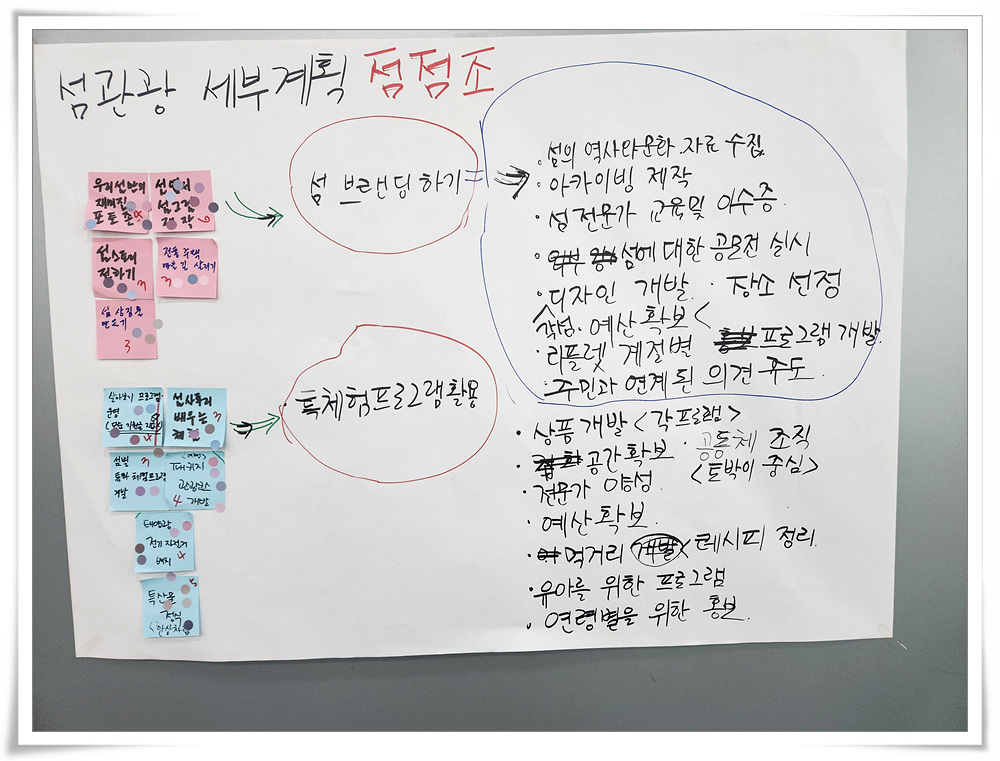 섬관광 세부계획 점점조
우리섬만의
재미진
포토존
섬만의
섬그림
제작 6
섬스토리
전하기 7
전통 주택
마을길 살리기
3
섬 상징물
만들기
3
섬 브랜딩하기
· 섬의 역사와문화 자료 수집
· 아카이빙 제작
· 섬전문가 교육및 이수증.
· 섬에대한 공모전 실시
· 디자인 개발. · 장소 선정
각섬. 예산확보
· 리플렛 계절변 프로그램 개발.
· 주민과 연계된 의견 유도.
살아보기 프로그램
운영
4
섬사투리
배우는 3
체험
섬별 3
특화 체험프로그램
개발
패키지
관광코스
4 개발
태양광
전기 자전거
배치 4
특산물 5
정식
<한상차림
· 특체험프로그램활용
· 상품개발 <각프램>
· 공간확보 · 공동체 조직
<토박이 중심>
· 전문가 양성.
· 예산확보.
· 먹거리 개발 레시피 정리.
· 유아를 위한 프로그램
· 연령별을 위한 홍보.